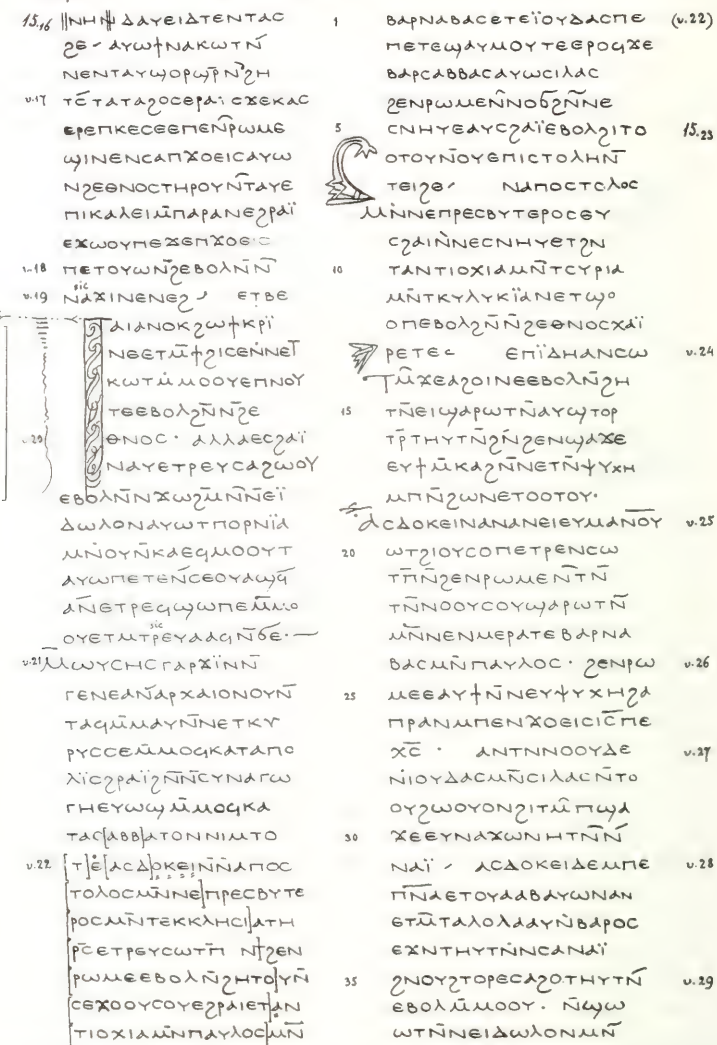 15.16 ⲛⲏⲓ ⲛⲇⲁⲩⲉⲓⲇⲧⲉⲛⲧⲁⲥ
ϩⲉ - ⲁⲩⲱϯⲛⲁⲕⲱⲧⲛ̄
ⲛⲉⲛⲧⲁⲩϣⲟⲣϣⲣ̄ⲛ̄ϩⲏ
v.17 ⲧⲥ̄ⲧⲁⲧⲁϩⲟⲥⲉⲣⲁⲓⲥϫⲉⲕⲁⲥ
ⲉⲣⲉⲡⲕⲉⲥⲉⲉⲡⲉⲛ̄ⲣⲱⲙⲉ
ϣⲓⲛⲉⲛⲥⲁⲡϫⲟⲉⲓⲥⲁⲩⲱ
ⲛϩⲉⲑⲛⲟⲥⲧⲏⲣⲟⲩⲛ̄ⲧⲁⲩⲉ
ⲡⲓⲕⲁⲗⲉⲓⲙ̄ⲡⲁⲣⲁⲛⲉϩⲣⲁϊ
ⲉϫⲱⲟⲩⲡⲉϫⲉⲡϫⲟⲉⲓⲥ
v.18 ⲡⲉⲧⲟⲩⲱⲛϩ̄ⲉⲃⲟⲗⲛ̄ⲛ̄
sic
v.19 ⲛⲁϫⲓⲛⲉⲛⲉϩ - ⲉⲧⲃⲉ
ⲡⲁⲓⲁⲛⲟⲕϩⲱϯⲕⲣⲓ̈
ⲛⲉⲉⲧⲙ̄ϯϩⲓⲥⲉⲛ̄ⲛⲉⲧ̄
ⲕⲱⲧⲙ̄ⲙⲟⲟⲩⲉⲡⲛⲟⲩ
ⲧⲉⲉⲃⲟⲗϩⲛ̄ⲛ̄ϩⲉ
v.20 ⲑⲛⲟⲥ · ⲁⲗⲗⲁⲉⲥϩⲁⲓ̈
ⲛⲁⲩⲉⲧⲣⲉⲩⲥⲁϩⲱⲟⲩ
ⲉⲃⲟⲗⲛ̄ⲛϫⲱϩⲙ̄ⲛ̄ⲛⲉⲓ̈
ⲇⲱⲗⲟⲛⲁⲩⲱⲧⲡⲟⲣⲛⲓ̈ⲁ
ⲙⲛ̄ⲟⲩⲛ̄ⲕⲁⲉϥⲙⲟⲟⲩⲧ
ⲁⲩⲱⲡⲉⲧⲉⲛ̄ⲥⲉⲟⲩⲁϣϥ̄
ⲁⲛ̄ⲉⲧⲣⲉϥϣⲱⲡⲉⲙ̄ⲙⲟ
sic
ⲟⲩⲉⲧⲙⲧⲣⲉⲩⲁⲁϥⲛ̄ϭⲉ·—
v.21 ⲙ̄ⲱⲩⲥⲏⲥⲅⲁⲣϫⲓ̈ⲛⲛ̄
ⲅⲉⲛⲉⲁⲛ̄ⲁⲣⲭⲁⲓⲟⲛⲟⲩⲛ̄
ⲧⲁϥⲙ̄ⲙⲁⲩⲛ̄ⲛⲉⲧⲕⲩ
ⲣⲩⲥⲥⲉⲙ̄ⲙⲟϥⲕⲁⲧⲁⲡⲟ
ⲗⲓ̈ⲥϩⲣⲁⲓ̈ϩⲛ̄ⲛ̄ⲥⲩⲛⲁⲅⲱ
ⲅⲏⲉⲩⲱϣⲙ̄ⲙⲟϥⲕⲁ
ⲧⲁⲥ[ⲁⲃⲃ]ⲁⲧⲟⲛⲛⲓⲙⲧⲟ
v.22 [ⲧ]ⲉ[ⲁⲥⲇ]ⲟⲕⲉⲓⲛ̄ⲛⲁⲡⲟⲥ
[ⲧⲟⲗⲟⲥⲙⲛ̄ⲛⲉ]ⲡⲣⲉⲥⲃⲩⲧⲉ
[ⲣⲟⲥⲙⲛ̄ⲧⲉⲕⲕⲗⲏⲥⲓ]ⲁⲧⲏ
[ⲣⲥ̄ⲉⲧⲣⲉⲩⲥⲱⲧⲡ̄ ⲛ̄]ϩⲉⲛ
[ⲣⲱⲙⲉⲉⲃⲟⲗⲛ̄ϩⲏⲧⲟ]ⲩⲛ̄
[ⲥⲉϫⲟⲟⲩⲥⲟⲩⲉϩⲣⲁⲓⲉⲧ]ⲁⲛ
[ⲧⲓⲟⲭⲓⲁⲙⲛ̄ⲡⲁⲩⲗⲟⲥ]ⲙⲛ̄
1 ⲃⲁⲣⲛⲁⲃⲁⲥⲉⲧⲉⲓ̈ⲟⲩⲇⲁⲥⲡⲉ (v.22)
ⲡⲉⲧⲉϣⲁⲩⲙⲟⲩⲧⲉⲉⲣⲟϥϫⲉ
ⲃⲁⲣⲥⲁⲃⲃⲁⲥⲁⲩⲱⲥⲓⲗⲁⲥ
ϩⲉⲛⲣⲱⲙⲉⲛ̄ⲛⲟϭϩⲛ̄ⲛⲉ
5 ⲥⲛⲏⲩⲉⲁⲩⲥϩⲁⲓ̈ⲉⲃⲟⲗϩⲓⲧⲟ 15.23
ⲟⲧⲟⲩⲛ̄ⲟⲩⲉⲡⲓⲥⲧⲟⲗⲏⲛ̄
ⲧⲉⲓϩⲉ· ⲛⲁⲡⲟⲥⲧⲟⲗⲟⲥ
ⲙⲛ̄ⲛⲉⲡⲣⲉⲥⲃⲩⲧⲉⲣⲟⲥⲉⲩ
ⲥϩⲁⲓⲛ̄ⲛⲉⲥⲛⲏⲩⲉⲧϩⲛ
10 ⲧⲁⲛⲧⲓⲟⲭⲓⲁⲙⲛ̄ⲧⲥⲩⲣⲓⲁ
ⲙⲛ̄ⲧⲕⲩⲗⲩⲕⲓ̈ⲁⲛⲉⲧϣⲟ
ⲟⲡⲉⲃⲟⲗϩⲛ̄ⲛ̄ϩⲉⲑⲛⲟⲥⲭⲁⲓ̈
ⲣⲉⲧⲉ - ⲉⲡⲓ̈ⲇⲏⲁⲛⲥⲱ v.24
ⲧⲙ̄ϫⲉⲁϩⲟⲓⲛⲉⲉⲃⲟⲗⲛ̄ϩⲏ
15 ⲧⲛ̄ⲉⲓϣⲁⲣⲱⲧⲛ̄ⲁⲩϣⲧⲟⲣ
ⲧⲣ̄ⲧⲏⲩⲧⲛ̄ϩⲛ̄ϩⲉⲛϣⲁϫⲉ
ⲉⲩϯⲙ̄ⲕⲁϩⲛ̄ⲛⲉⲧⲛ̄ⲯⲩⲭⲏ
ⲙⲡⲛ̄ϩⲱⲛⲉⲧⲟⲟⲧⲟⲩ·
ⲁⲥⲇⲟⲕⲉⲓⲛⲁⲛⲁⲛⲉⲓⲉⲩⲙⲁⲛ̄ⲟⲩ v.25
20 ⲱⲧϩⲓⲟⲩⲥⲟⲡⲉⲧⲣⲉⲛⲥⲱ
ⲧⲡ̄ⲛ̄ϩⲉⲛⲣⲱⲙⲉⲛ̄ⲧⲛ̄
ⲧⲛ̄ⲛⲟⲟⲩⲥⲟⲩϣⲁⲣⲱⲧⲛ̄
ⲙⲛ̄ⲛⲉⲛⲙⲉⲣⲁⲧⲉⲃⲁⲣⲛⲁ
ⲃⲁⲥⲙⲛ̄ⲡⲁⲩⲗⲟⲥ · ϩⲉⲛⲣⲱ v.26
25 ⲙⲉⲉⲁⲩϯⲛ̄ⲛⲉⲩⲯⲩⲭⲏϩⲁ
ⲡⲣⲁⲛⲙⲡⲉⲛϫⲟⲉⲓⲥⲓⲥ̄ⲡⲉ
ⲭⲥ̄ · ⲁⲛⲧⲛⲛⲟⲟⲩⲇⲉ v.27
ⲛ̄ⲓⲟⲩⲇⲁⲥⲙⲛ̄ⲥⲓⲗⲁⲥⲛ̄ⲧⲟ
ⲟⲩϩⲱⲟⲩⲟⲛϩⲓⲧⲙ̄ⲡϣⲁ
30 ϫⲉⲉⲩⲛⲁϫⲱⲛⲏⲧⲛ̄ⲛ̄
ⲛⲁⲓ̈ - ⲁⲥⲇⲟⲕⲉⲓⲇⲉⲙⲡⲉ v.28
ⲡⲛ̄ⲁⲉⲧⲟⲩⲁⲁⲃⲁⲩⲱⲛⲁⲛ
ⲉⲧⲙ̄ⲧⲁⲗⲟⲗⲁⲁⲩⲛ̄ⲃⲁⲣⲟⲥ
ⲉϫⲛⲧⲏⲩⲧⲛ̄ⲛⲥⲁⲛⲁⲓ̈
35 ϩⲛⲟⲩϩⲧⲟⲣⲉⲥⲁϩⲟⲧⲏⲩⲧⲛ̄ v.29
ⲉⲃⲟⲗⲙ̄ⲙⲟⲟⲩ· ⲛ̄ϣⲱ
ⲱⲧⲛ̄ⲛⲉⲓⲇⲱⲗⲟⲛⲙⲛ̄